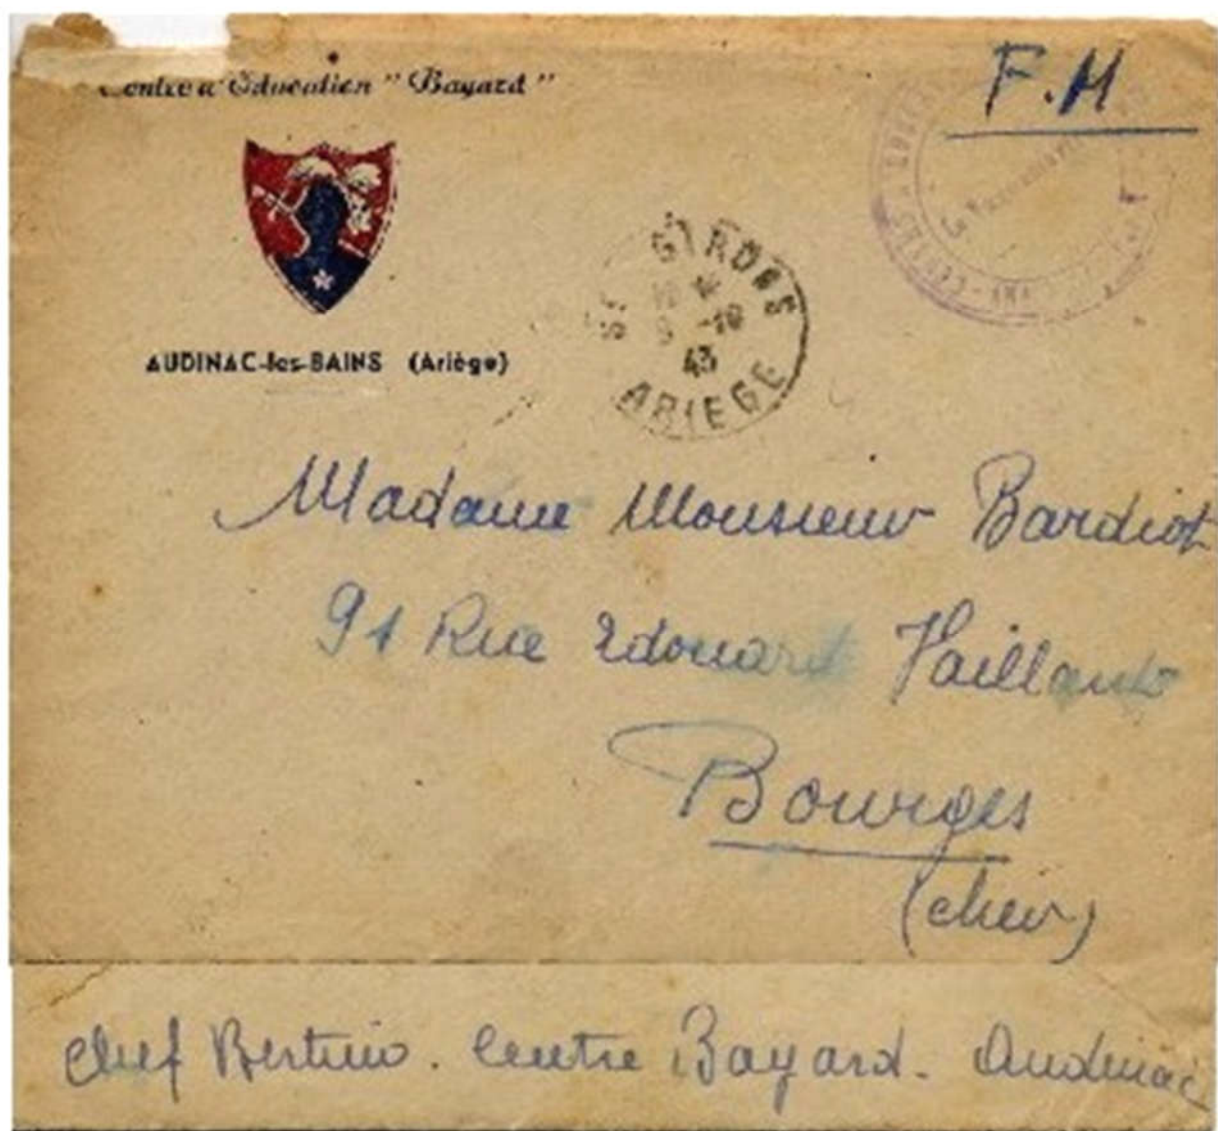 Centre d'Éducation "Bayard"
F.M
AUDINAC-les-BAINS (Ariège)
ST GIRONS
9 -10
43
ARIEGE
Madame Monsieur Bardiot
91 Rue Edouard Vaillant
Bourges
(cher)
Chef Bertino. Centre Bayard. Audinac